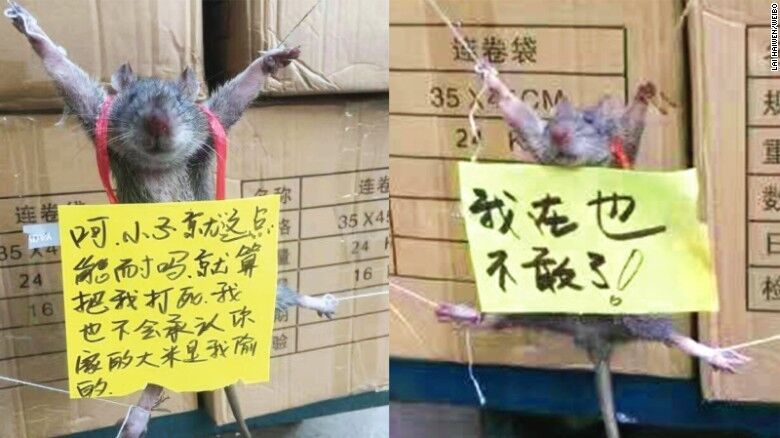 呵.小子就这点
能耐吗.就算
把我打死.我
也不会承认你
家的大米是我偷
的.
连卷袋
35 X 4
24
16
名称 连卷
格 35 X 45
量 24 K
16
验
连卷袋
35 X 45 CM
24 K
我在也
不敢了!
规
重
数
口
检
LAI HAIWEN/WEIBO